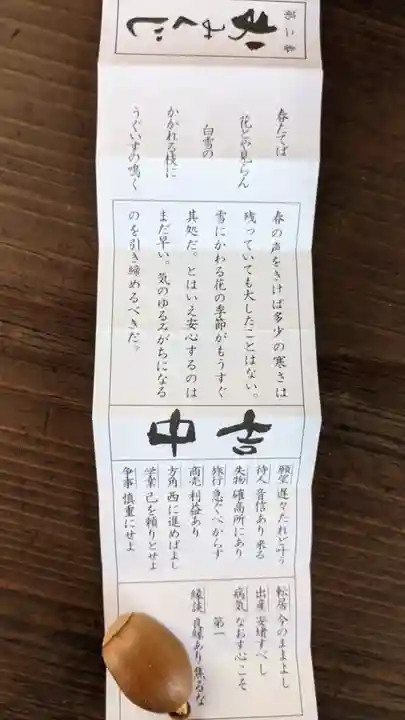 第二番
おみくじ
春たてば
花とや見らん
白雪の
かかれる枝に
うぐいすの鳴く
春の声をきけば多少の寒さは
残っていても大したことはない。
雪にかわる花の季節がもうすぐ
其処だ。とはいえ安心するのは
まだ早い。気のゆるみがちになる
のを引き締めるべきだ。
中吉
願望 遅々たれど叶う
待人 音信あり来る
失物 確高所にあり
旅行 急ぐべからず
商売 利益あり
方角 西に進めばよし
学業 己を頼りとせよ
争事 慎重にせよ
転居 今のままよし
出産 安緒すべし
病気 なおす心こそ
第一
縁談 良縁あり焦るな